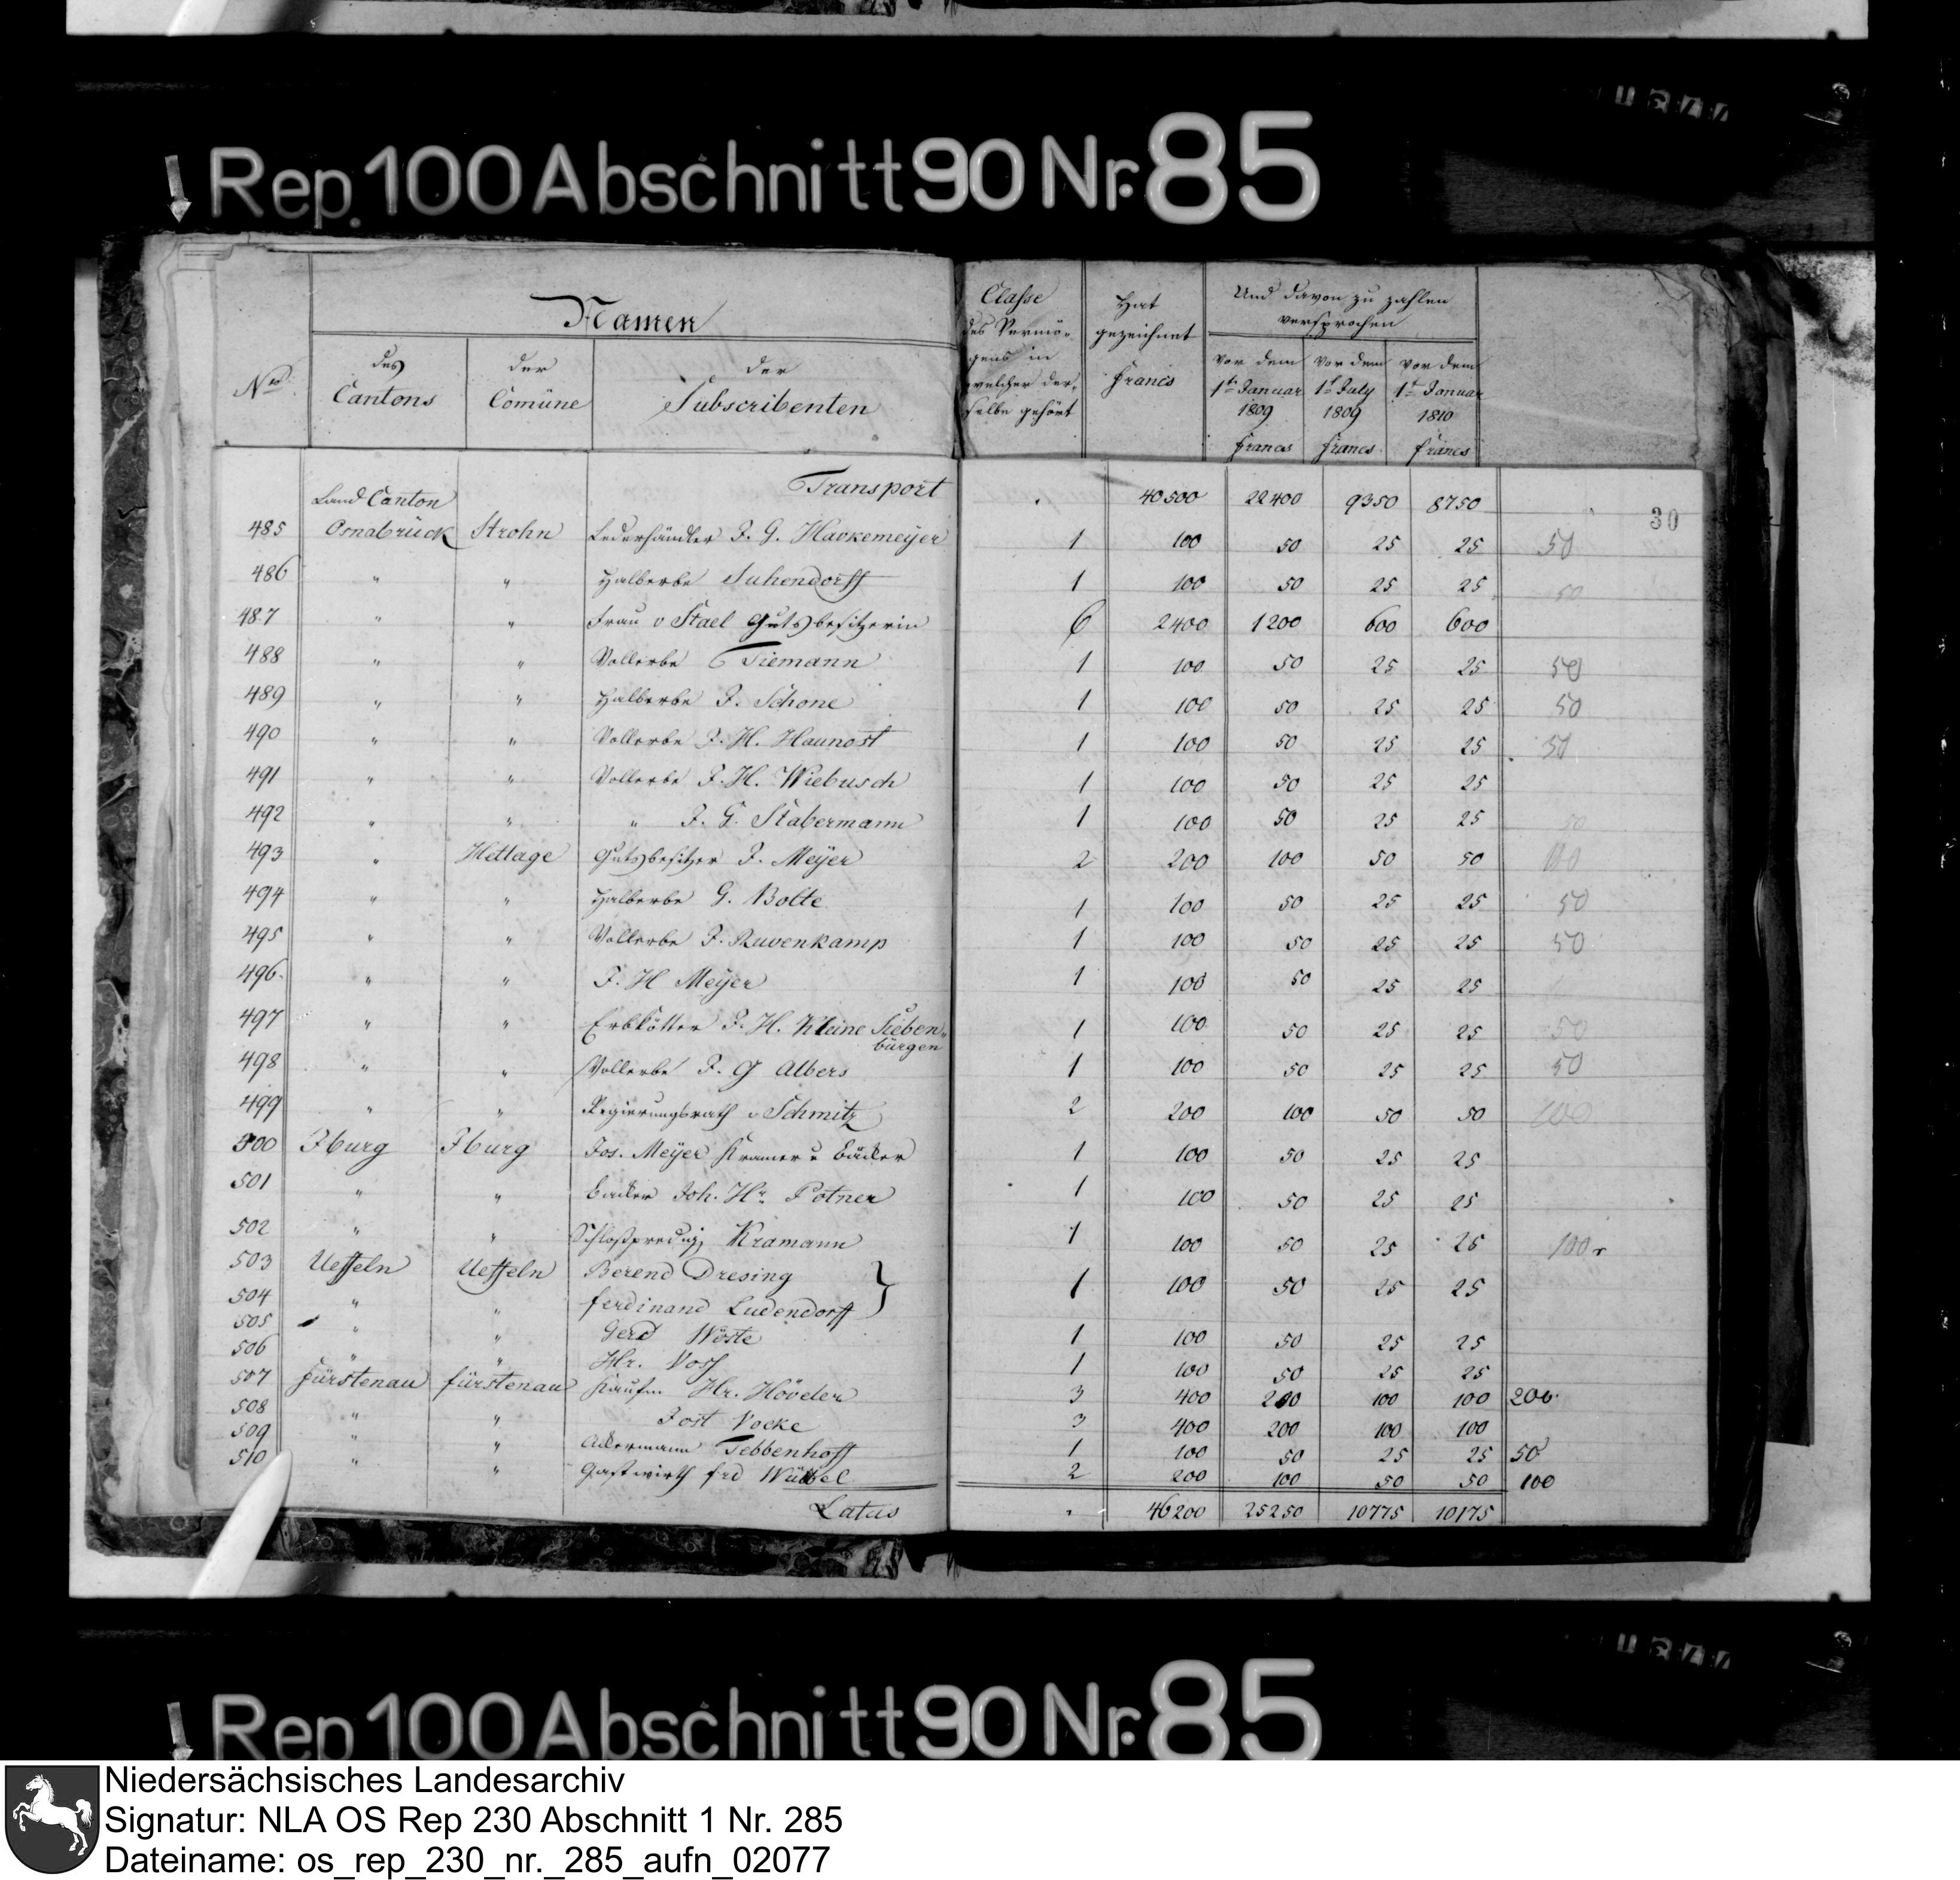 Rep. 100 Abschnitt 90 Nr. 85
Namen
Classe des Vermö-
gens in
welcher der-
selbe gehört
Hat
gezeichnet
Francs
Und davon zu zahlen
versprochen
No.
des
Cantons
der
Comüne
der
Subscribenten
vor dem
1t Januar
1809
Francs
vor dem
1t July
1809
Francs
vor dem
1t Januar
1810
Francs
Transport 40500 22400 9350 8750
30
Land Canton
485 Osnabrück Strohn Lederhändler J. G. Havkemeyer 1 100 50 25 25 50
486 " " Halberbe Suhendorff 1 100 50 25 25 50
487 " " Frau v Stael Gutsbesitzerin 6 2400 1200 600 600
488 " " Vollerbe Tiemann 1 100 50 25 25 50
489 " " Halberbe J. Schone 1 100 50 25 25 50
490 " " Vollerbe J. H. Haunost 1 100 50 25 25 50
491 " " Vollerbe J. H. Wiebusch 1 100 50 25 25
492 " " " J. G. Stabermann 1 100 50 25 25 50
493 " Hettage Gutsbesitzer J. Meyer 2 200 100 50 50 100
494 " " Halberbe G. Bolte 1 100 50 25 25 50
495 " " Vollerbe J. Ruvenkamp 1 100 50 25 25 50
496. " " J. H Meyer 1 100 50 25 25
497 " " Erbkötter J. H. Kleine Sieben-
bürgen 1 100 50 25 25 50
498 " " Vollerbe J. G Albers 1 100 50 25 25 50
499 " " Regierungsrath v Schmitz 2 200 100 50 50 100
500 Iburg Iburg Jos. Meyer Kramer u Bäcker 1 100 50 25 25
501 " " Bäcker Joh. Hr. Potner 1 100 50 25 25
502 " " Schloßpredig. Kramann 1 100 50 25 25 100
503 Ueffeln Ueffeln Berend Dresing } 1 100 50 25 25
504 " " Ferdinand Ludendorff
505 " " Gerd Wöste 1 100 50 25 25
506 " " Hr. Voss 1 100 50 25 25
507 Fürstenau Fürstenau Kaufm. Hr. Höveler 3 400 200 100 100 200
508 " " Jost Vocke 3 400 200 100 100
509 " " Ackermann Tebbenhoff 1 100 50 25 25 50
510 " " Gastwirth Frd Wübbel 2 200 100 50 50 100
Latus 46200 25250 10775 10175
Rep 100 Abschnitt 90 Nr. 85
Niedersächsisches Landesarchiv
Signatur: NLA OS Rep 230 Abschnitt 1 Nr. 285
Dateiname: os_rep_230_nr._285_aufn_02077